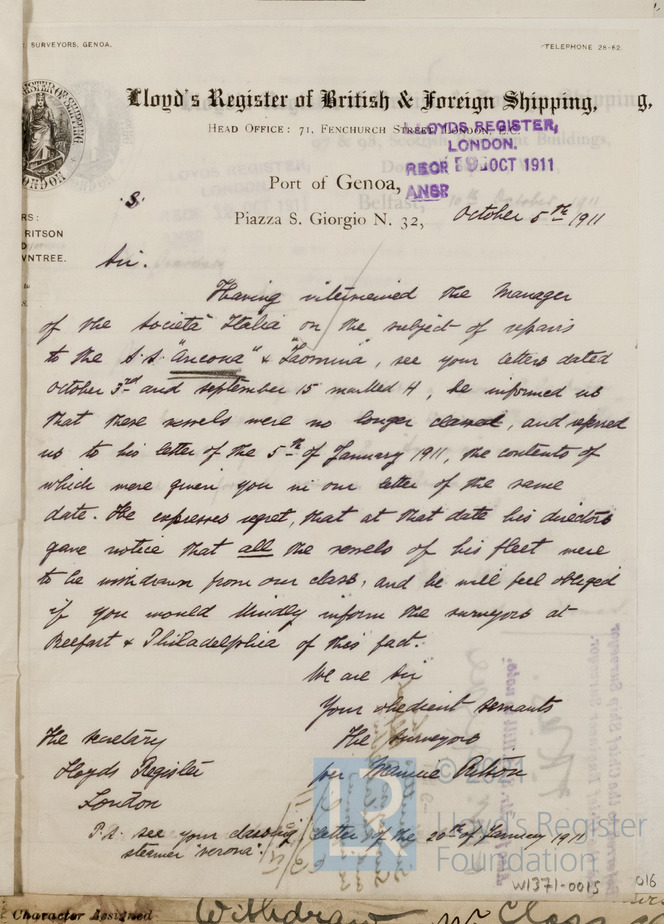 SURVEYORS, GENOA.
TELEPHONE 28-62.
Lloyd's Register of British & Foreign Shipping,
g,
HEAD OFFICE: 71, FENCHURCH STREET, LONDON, E.C.
LLOYDS REGISTER,
LONDON.
OCT 1911
ANSD
LONDON
Port of Genoa,
S.
Piazza S. Giorgio N. 32,
October 5th 1911
RS:
RITSON
D
WNTREE.
Sir.
Having interviewed the Manager
of the Societa "Italia" on the subject of repairs
to the S.S. "Ancona" & "Taormina", see your letters dated
October 3rd and September 15 marked H, he informed us
that these vessels were no longer classed, and referred
us to his letter of the 5th of January 1911, the contents of
which were given you in our letter of the same
date. He expresses regret, that at that date his directors
gave notice that all the vessels of his fleet were
to be withdrawn from our class, and he will feel obliged
if you would kindly inform the surveyors at
Belfast & Philadelphia of this fact.
We are Sir
Your obedient servants
The Secretary
The Surveyors
Lloyds Register
per Maurice Ritson
London
P.S. see your classing letter of the 20th of January 1911
steamer "Verona".
© 2021
Lloyd's Register
Foundation
W1371-0015
016
Character Assigned
Withdraw